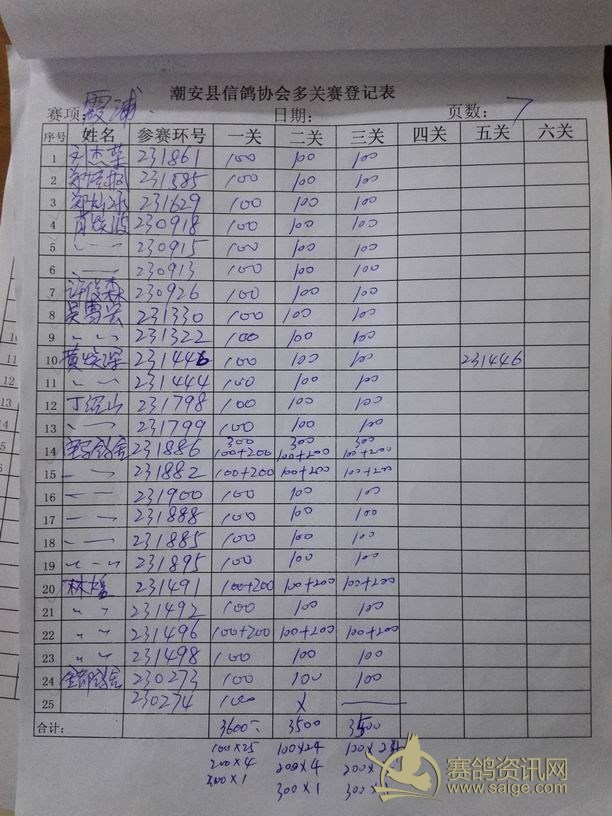 潮安县信鸽协会多关赛登记表
赛项: 霞浦 日期: 页数: 7
序号 姓名 参赛环号 一关 二关 三关 四关 五关 六关
1 刘杰荣 231861 100 100 100
2 231585 100 100 100
3 231629 100 100 100
4 230918 100 100 100
5 〃 230915 100 100 100
6 〃 230913 100 100 100
7 230926 100 100 100
8 231330 100 100 100
9 〃 〃 231322 100 100 100
10 231446 100 100 100 231446
11 〃 〃 231444 100 100 100
12 丁汉山 231798 100 100 100
13 〃 231799 100 100 100
14 231886 300 100+200 300 100+200 300 100+200
15 〃 〃 231882 100+200 100+200 100+200
16 〃 〃 231900 100 100 100
17 〃 〃 231888 100 100 100
18 〃 〃 231885 100 100 100
19 〃 〃 231895 100 100 100
20 231491 100+200 100+200 100+200
21 〃 〃 231492 100 100 100
22 〃 〃 231496 100+200 100+200 100+200
23 〃 〃 231498 100 100 100
24 230273 100 100 100
25 230274 100 X —
合计: 3600 3500 3500
100×25 100×24 100×24
200×4 200×4 200×
300×1 300×1 300×
赛鸽资讯网
www.saige.com
10
11
12
13
14
15